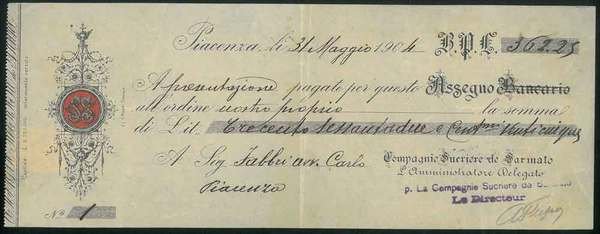 Piacenza, li 31 Maggio 1904 B.P.L. 362.25
A presentazione pagate per questo Assegno Bancario
all'ordine nostro proprio la somma
di Lit. Trecento sessantadue e Centmi Venticinque
A Sig. Fabbri avv. Carlo
Piacenza
Compagnie Sucrière de Sarmato
L'Amministratore Delegato
p. La Compagnie Sucriere de
Le Directeur
No. 1